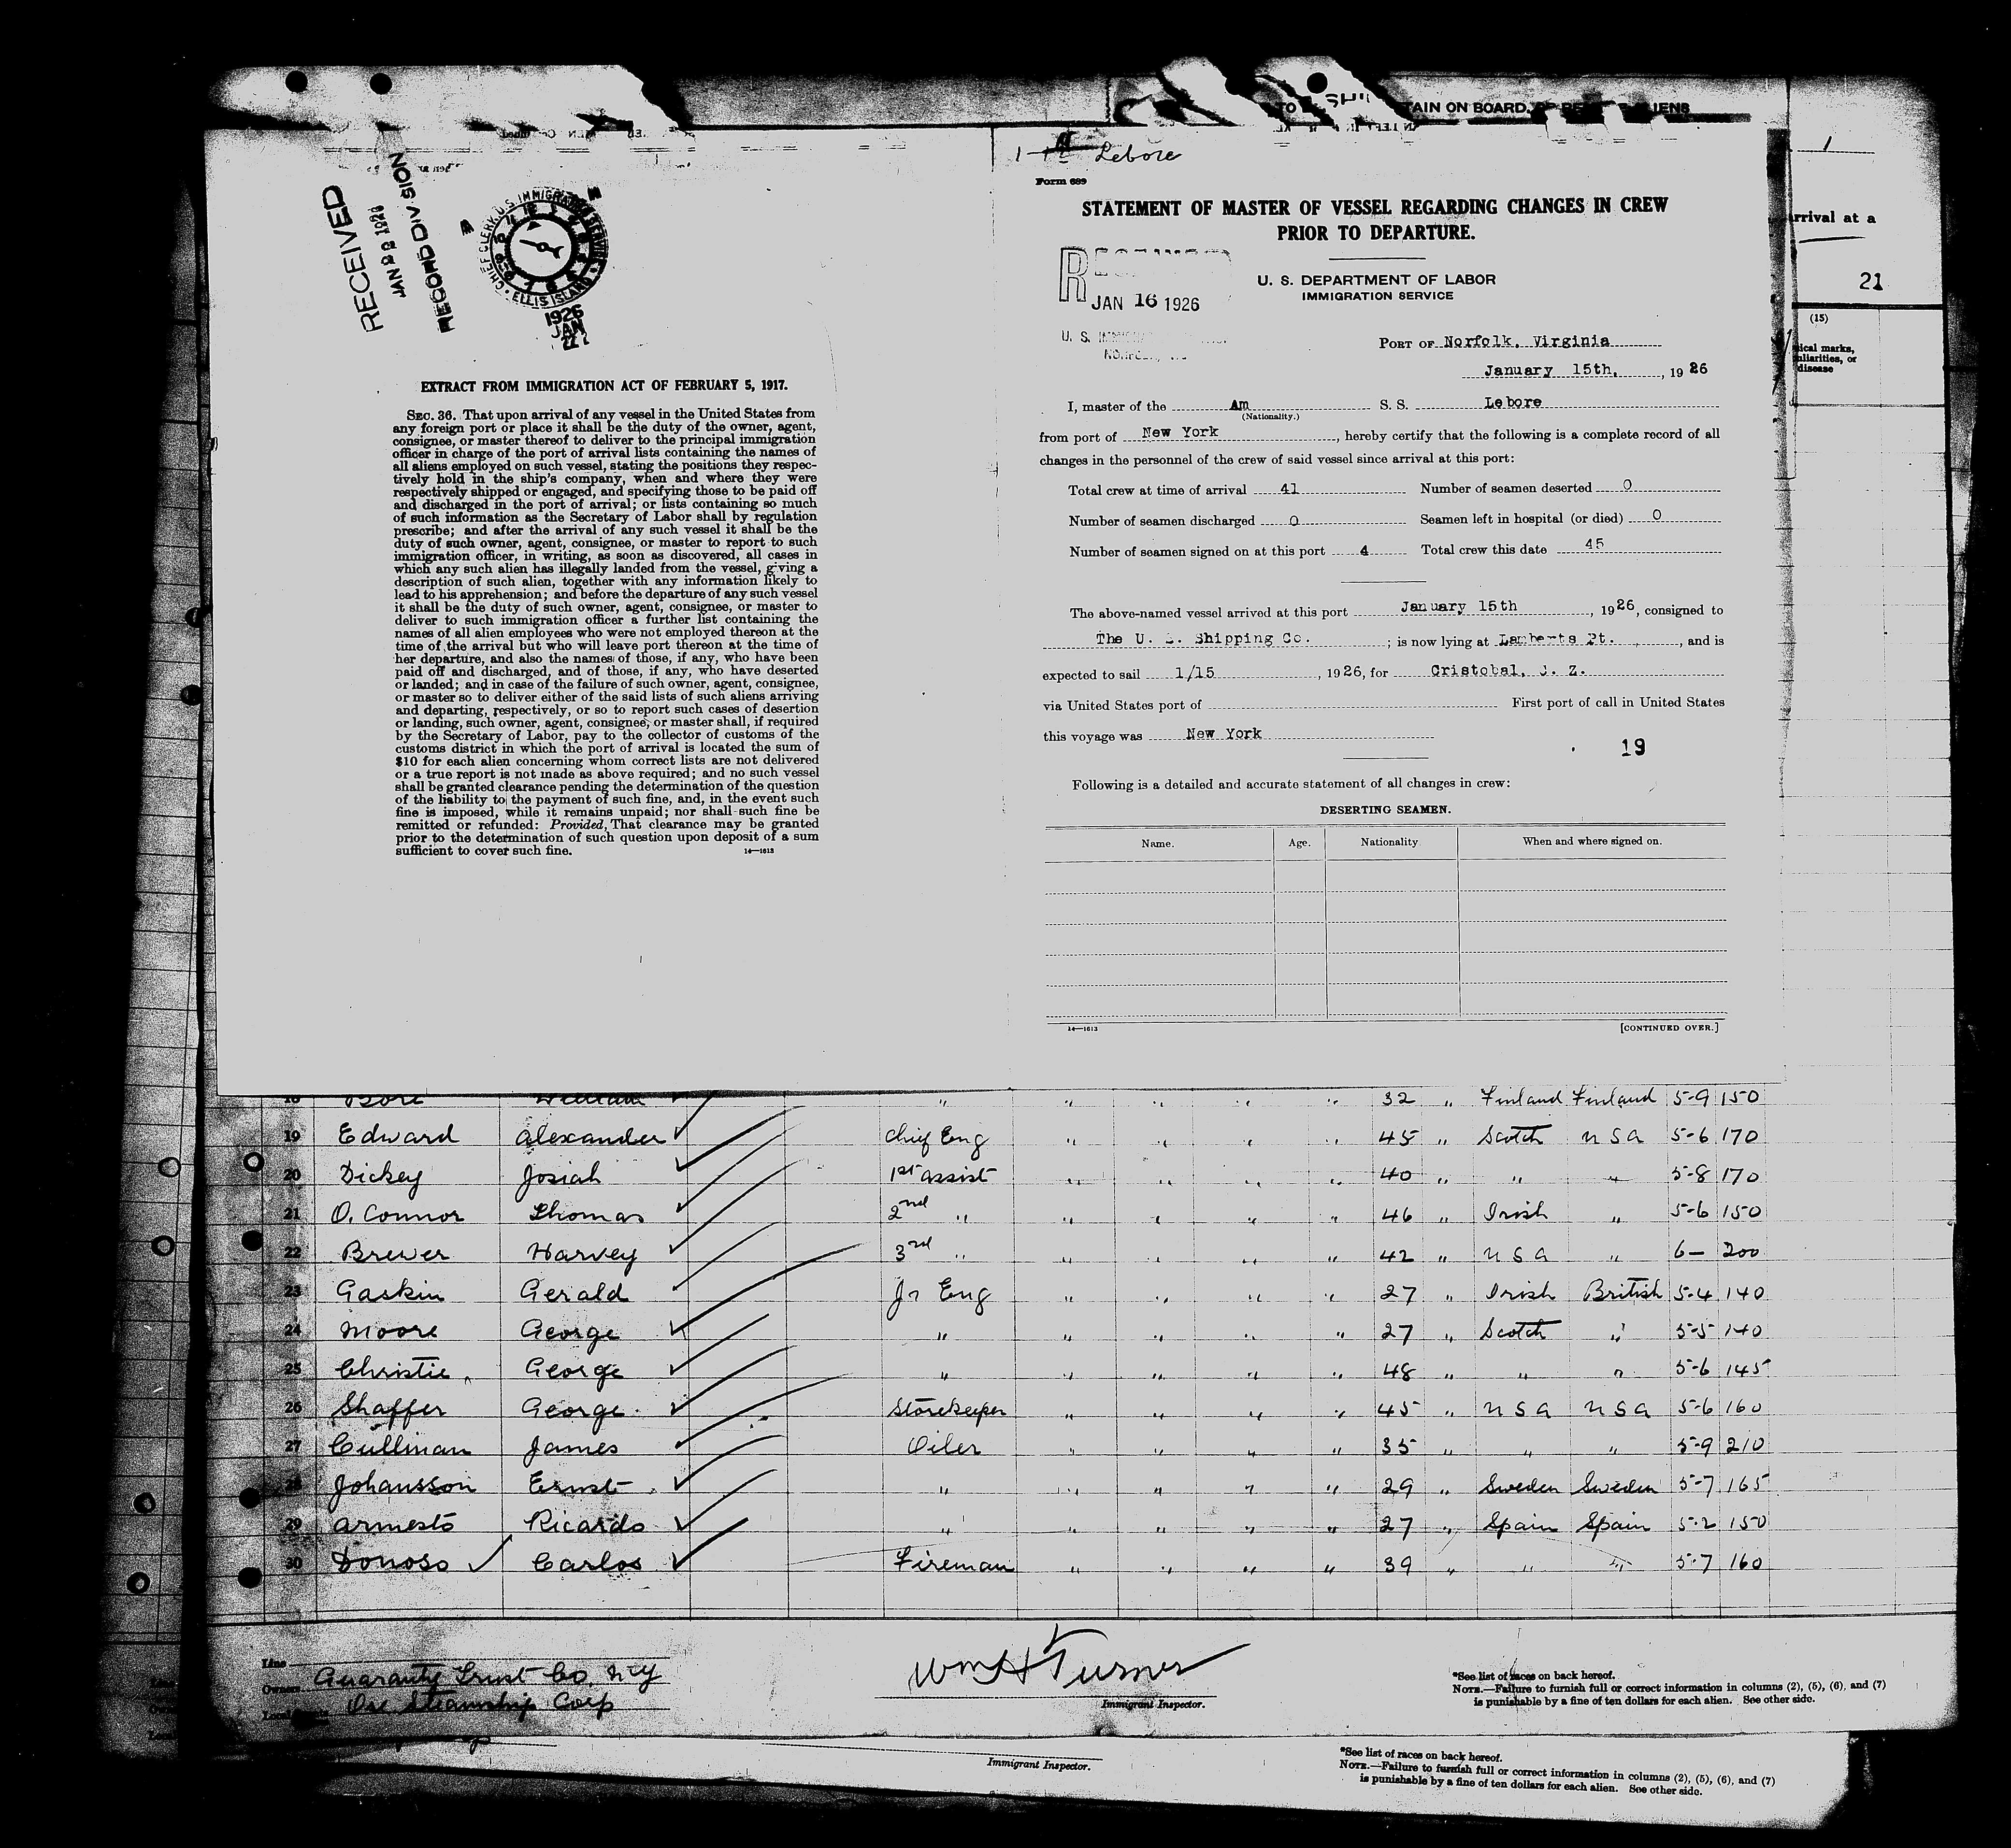 TO SHI TAIN ON BOARD, ALIENS
1 Lebore
Form 689
RECEIVED
JAN 22 1926
RECORD DIVISION
CHIEF CLERK U.S. IMMIGRATION SERVICE
ELLIS ISLAND
1926
JAN
22
EXTRACT FROM IMMIGRATION ACT OF FEBRUARY 5, 1917.
SEC. 36. That upon arrival of any vessel in the United States from
any foreign port or place it shall be the duty of the owner, agent,
consignee, or master thereof to deliver to the principal immigration
officer in charge of the port of arrival lists containing the names of
all aliens employed on such vessel, stating the positions they respec-
tively hold in the ship's company, when and where they were
respectively shipped or engaged, and specifying those to be paid off
and discharged in the port of arrival; or lists containing so much
of such information as the Secretary of Labor shall by regulation
prescribe; and after the arrival of any such vessel it shall be the
duty of such owner, agent, consignee, or master to report to such
immigration officer, in writing, as soon as discovered, all cases in
which any such alien has illegally landed from the vessel, giving a
description of such alien, together with any information likely to
lead to his apprehension; and before the departure of any such vessel
it shall be the duty of such owner, agent, consignee, or master to
deliver to such immigration officer a further list containing the
names of all alien employees who were not employed thereon at the
time of the arrival but who will leave port thereon at the time of
her departure, and also the names of those, if any, who have been
paid off and discharged, and of those, if any, who have deserted
or landed; and in case of the failure of such owner, agent, consignee,
or master so to deliver either of the said lists of such aliens arriving
and departing, respectively, or so to report such cases of desertion
or landing, such owner, agent, consignee, or master shall, if required
by the Secretary of Labor, pay to the collector of customs of the
customs district in which the port of arrival is located the sum of
$10 for each alien concerning whom correct lists are not delivered
or a true report is not made as above required; and no such vessel
shall be granted clearance pending the determination of the question
of the liability to the payment of such fine, and, in the event such
fine is imposed, while it remains unpaid; nor shall such fine be
remitted or refunded: Provided, That clearance may be granted
prior to the determination of such question upon deposit of a sum
sufficient to cover such fine. 14—1613
STATEMENT OF MASTER OF VESSEL REGARDING CHANGES IN CREW
PRIOR TO DEPARTURE.
RECEIVED
JAN 16 1926
U. S.
U. S. DEPARTMENT OF LABOR
IMMIGRATION SERVICE
PORT OF Norfolk, Virginia
January 15th, , 1926
I, master of the Am S. S. Lebore
(Nationality.)
from port of New York, hereby certify that the following is a complete record of all
changes in the personnel of the crew of said vessel since arrival at this port:
Total crew at time of arrival 41 Number of seamen deserted 0
Number of seamen discharged 0 Seamen left in hospital (or died) 0
Number of seamen signed on at this port 4 Total crew this date 45
The above-named vessel arrived at this port January 15th, 1926, consigned to
The U. S. Shipping Co. ; is now lying at Lamberts Pt. , and is
expected to sail 1/15, 1926, for Cristobal, C. Z.
via United States port of First port of call in United States
this voyage was New York
19
Following is a detailed and accurate statement of all changes in crew:
DESERTING SEAMEN.
Name. Age. Nationality. When and where signed on.
14—1613 [CONTINUED OVER.]
1
arrival at a
21
(15)
ical marks,
uliarities, or
disease
18 William ✓ " " " " " 32 " Finland Finland 5-9 150
19 Edward Alexander ✓ Chief Eng " " " " 45 " Scotch USA 5-6 170
20 Dickey Josiah ✓ 1st Assist " " " " 40 " " " 5-8 170
21 O. Connor Thomas ✓ 2nd " " " " " 46 " Irish " 5-6 150
22 Brewer Harvey ✓ 3rd " " " " " 42 " USA " 6— 200
23 Gaskin Gerald ✓ Jr Eng " " " " 27 " Irish British 5-4 140
24 Moore George ✓ " " " " " 27 " Scotch " 5-5 140
25 Christie George ✓ " " " " " 48 " " " 5-6 145
26 Shaffer George ✓ Storekeeper " " " " 45 " USA USA 5-6 160
27 Cullinan James ✓ Oiler " " " " 35 " " " 5-9 210
28 Johansson Ernst ✓ " " " " " 29 " Sweden Sweden 5-7 165
29 Armesto Ricardo ✓ " " " " " 27 " Spain Spain 5-2 150
30 Donoso ✓ Carlos ✓ Fireman " " " " 39 " " " 5-7 160
Line
Owners Guaranty Trust Co. NY
Local Ore Steamship Corp
Wm H Turner
Immigrant Inspector.
*See list of races on back hereof.
NOTE.—Failure to furnish full or correct information in columns (2), (5), (6), and (7)
is punishable by a fine of ten dollars for each alien. See other side.
Immigrant Inspector.
*See list of races on back hereof.
NOTE.—Failure to furnish full or correct information in columns (2), (5), (6), and (7)
is punishable by a fine of ten dollars for each alien. See other side.